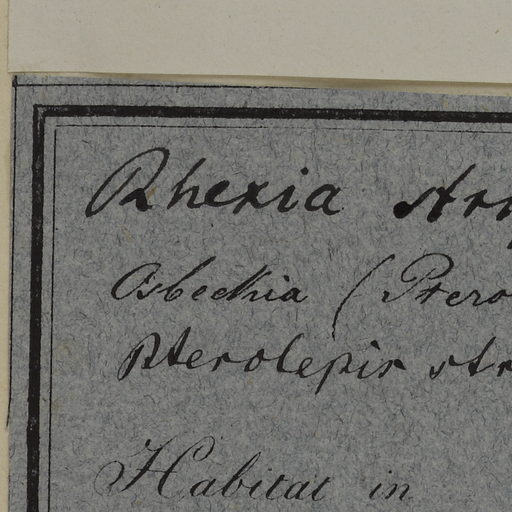 Rhexia str
Osbeckia (Ptero
Pterolepis str
Habitat in